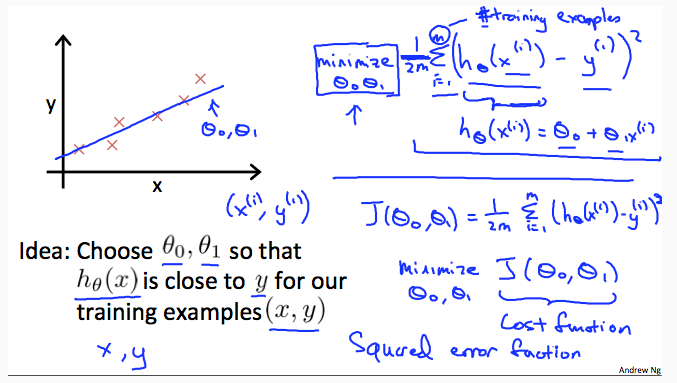 #training examples
minimize 1/2m m Σ i=1 (hθ(x^(i)) - y^(i))²
θ₀,θ₁
y
θ₀,θ₁
hθ(x^(i)) = θ₀ + θ₁x^(i)
x
(x^(i), y^(i))
J(θ₀,θ₁) = 1/2m m Σ i=1 (hθ(x^(i)) - y^(i))²
Idea: Choose θ₀, θ₁ so that
hθ(x) is close to y for our
training examples (x, y)
x, y
minimize J(θ₀,θ₁)
θ₀,θ₁
Cost function
Squared error faction
Andrew Ng